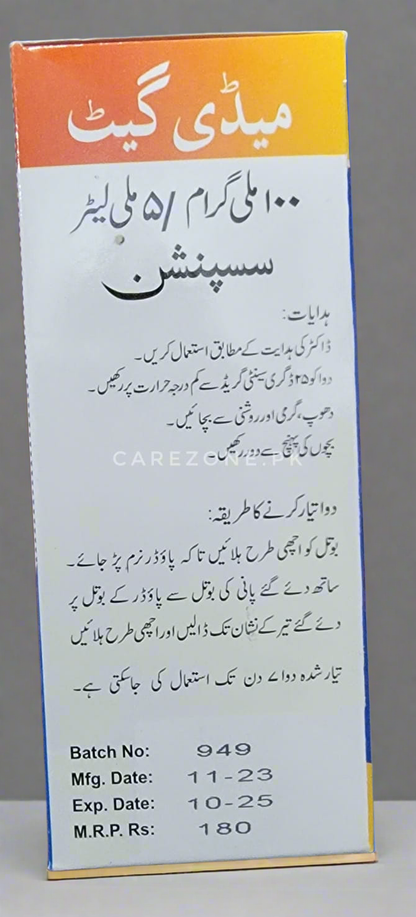 میڈی گیٹ
۱۰۰ ملی گرام /۵ ملی لیٹر
سسپنشن
ہدایات:
ڈاکٹر کی ہدایت کے مطابق استعمال کریں۔
دوا کو ۲۵ ڈگری سینٹی گریڈ سے کم درجہ حرارت پر رکھیں۔
دھوپ، گرمی اور روشنی سے بچائیں۔
بچوں کی پہنچ سے دور رکھیں۔
CAREZONE.PK
دوا تیار کرنے کا طریقہ:
بوتل کو اچھی طرح ہلائیں تاکہ پاؤڈر نرم پڑ جائے۔
ساتھ دئے گئے پانی کی بوتل سے پاؤڈر کے بوتل پر
دئے گئے تیر کے نشان تک ڈالیں اور اچھی طرح ہلائیں
تیار شدہ دوا ۷ دن تک استعمال کی جاسکتی ہے۔
Batch No: 949
Mfg. Date: 11-23
Exp. Date: 10-25
M.R.P. Rs: 180